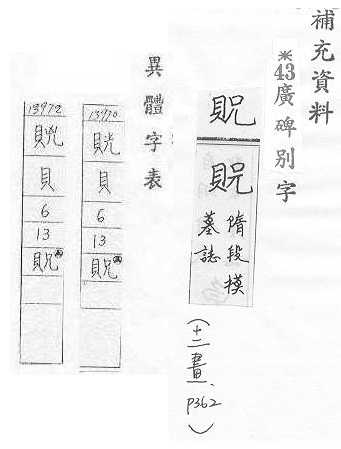 補充資料
※43廣碑別字
貺
隋段模
墓誌
(十二畫、P362)
異體字表
13970
貝
6
13
貺
13972
貝
6
13
貺